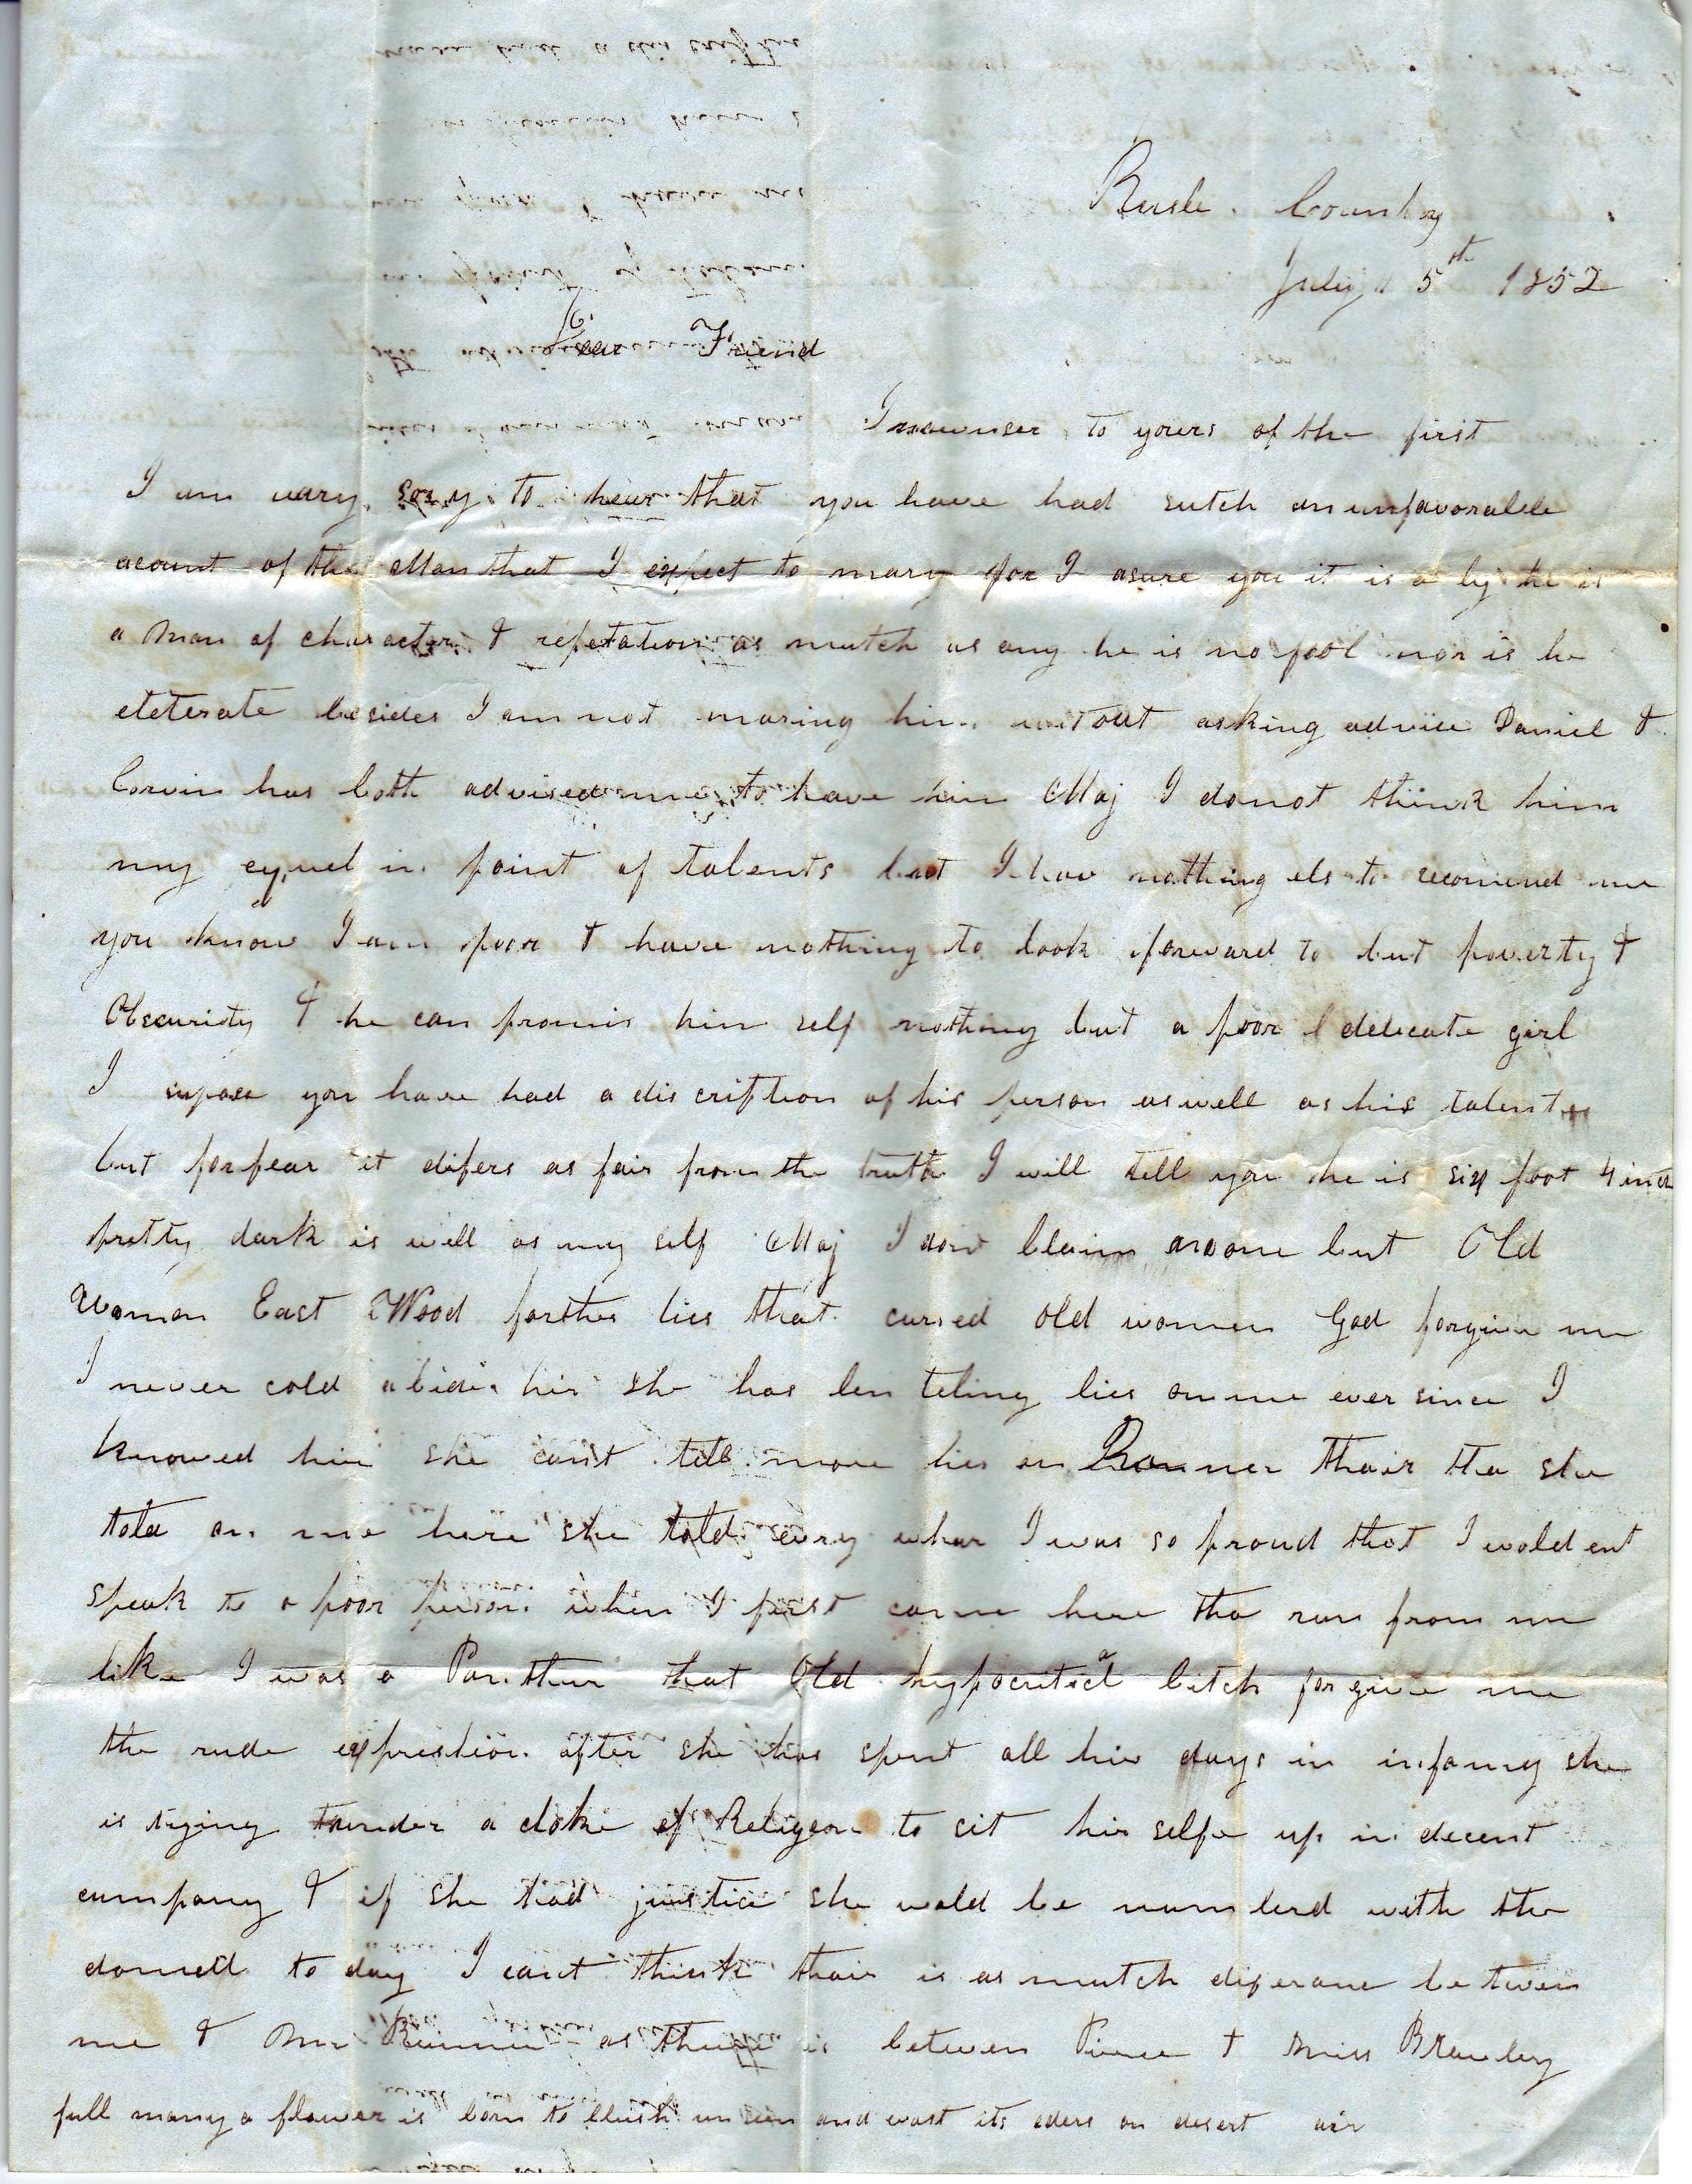 Rusk County
July 5th 1852
Dear Friend
In answer to yours of the first
I am vary sory to hear that you have had sutch an unfavorable
acount of the Man that I expect to mary for I asure you it is a ly he is
a man of character & repetation as mutch as any he is no fool nor is he
eleterate besides I am not maring him without asking advice Daniel &
Corvin has both advised me to have him Maj I do not think him
my equel in point of talents but I hav nothing els to recomend me
you know I am poor & have nothing to look forward to but poverty &
Obscurity & he can promis him self nothing but a poor delicate girl
I supose you have had a discription of his person as well as his talents
but for fear it difers as fair from the truth I will tell you he is six foot 4 inch
pretty dark is well as my self Maj I dont blaim noone but Old
Woman East Wood for the lies that cursed old women God forgive me
I never cold abide hir she has ben teling lies on me ever since I
knowed hir she cant tell more lies on thair the she
told on me here she told evry whar I was so proud that I woldent
speak to a poor person when I first came here tha run from me
like I was a Panther that Old hypocritical bitch forgive me
the rude expression after she has spent all hir days in infamy she
is trying under a cloke of Religeon to sit hir selfe up in decent
cumpany & if she had justice she wold be numberd with the
damed to day I cant think thair is as mutch diferance between
me & Mr as there is between Pierce & Miss Brawley
full many a flower is born to blush unseen and wast its oders on desert air